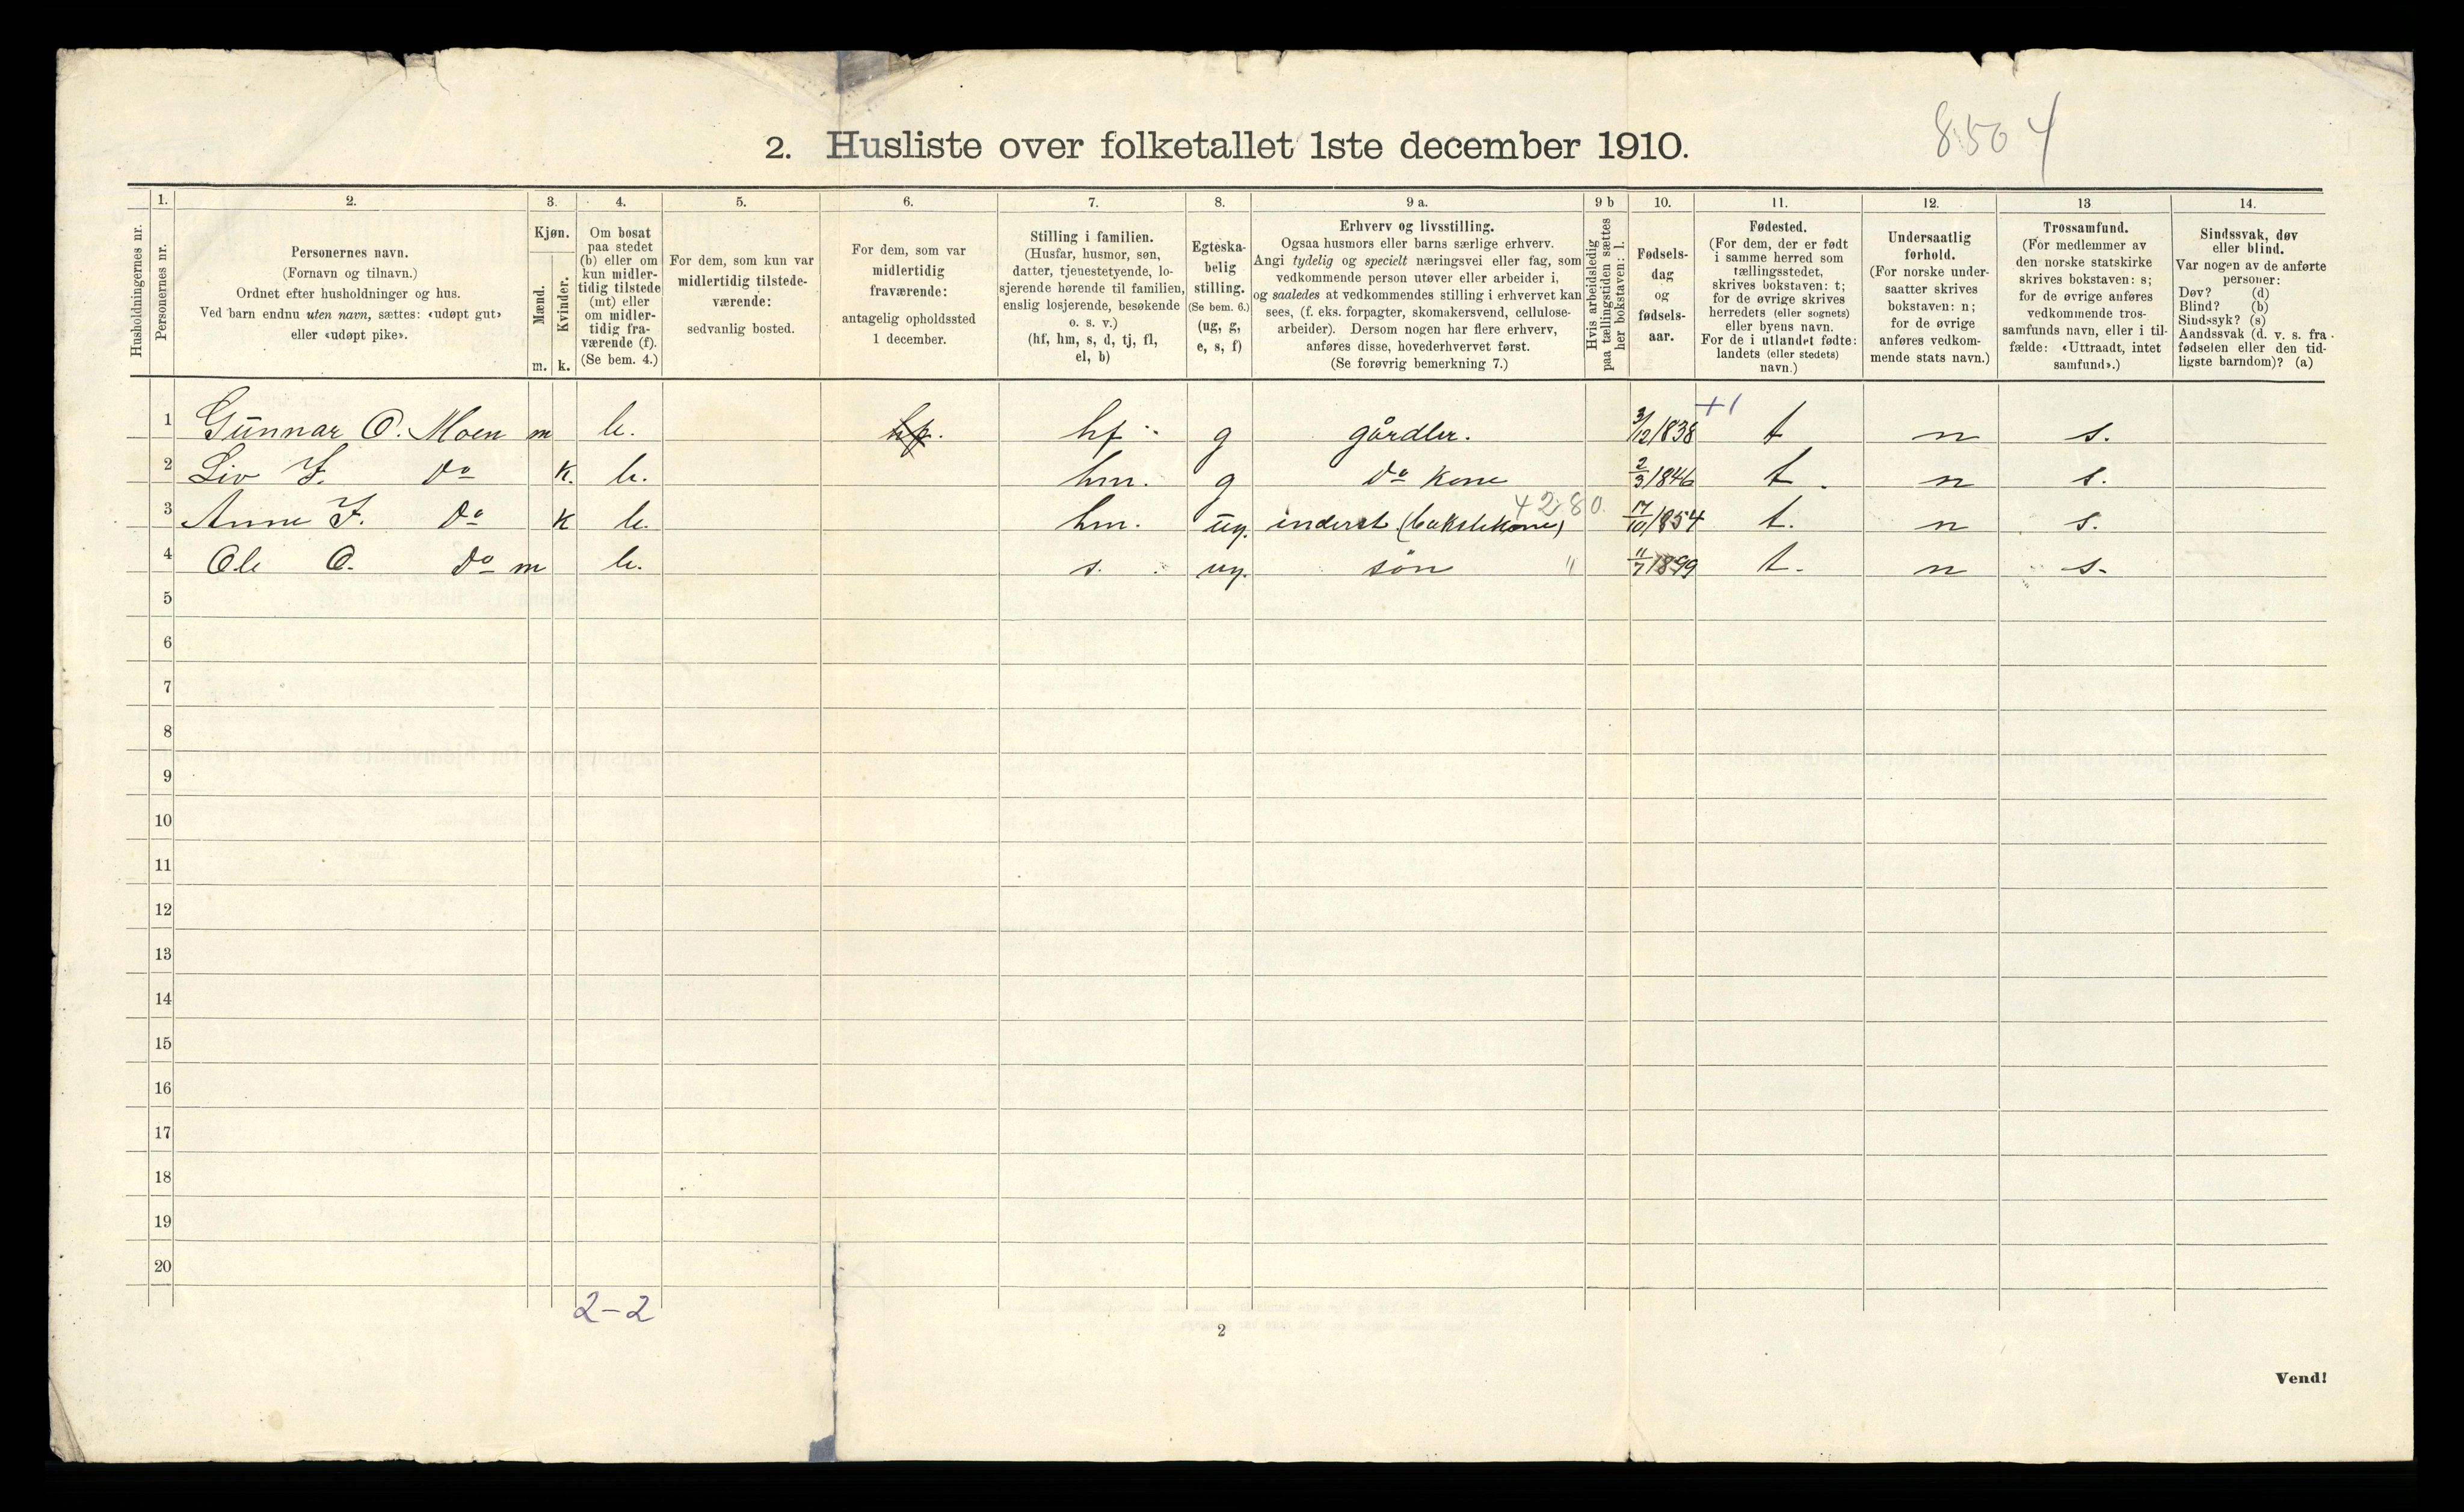 8504
2. Husliste over folketallet 1ste december 1910.
Husholdningernes nr.
1. Personernes nr.
2. Personernes navn. (Fornavn og tilnavn.) Ordnet efter husholdninger og hus. Ved barn endnu uten navn, sættes: «udøpt gut» eller «udøpt pike».
3. Kjøn. Mænd. m. Kvinder. k.
4. Om bosat paa stedet (b) eller om kun midlertidig tilstede (mt) eller om midlertidig fraværende (f). (Se bem. 4.)
5. For dem, som kun var midlertidig tilstedeværende: sedvanlig bosted.
6. For dem, som var midlertidig fraværende: antagelig opholdssted 1 december.
7. Stilling i familien. (Husfar, husmor, søn, datter, tjenestetyende, losjerende hørende til familien, enslig losjerende, besøkende o. s. v.) (hf, hm, s, d, tj, fl, el, b)
8. Egteskabelig stilling. (Se bem. 6.) (ug, g, e, s, f)
9 a. Erhverv og livsstilling. Ogsaa husmors eller barns særlige erhverv. Angi tydelig og specielt næringsvei eller fag, som vedkommende person utøver eller arbeider i, og saaledes at vedkommendes stilling i erhvervet kan sees, (f. eks. forpagter, skomakersvend, cellulosearbeider). Dersom nogen har flere erhverv, anføres disse, hovederhvervet først. (Se forøvrig bemerkning 7.)
9 b Hvis arbeidsledig paa tællingstiden sættes her bokstaven: l.
10. Fødselsdag og fødselsaar.
11. Fødested. (For dem, der er født i samme herred som tællingsstedet, skrives bokstaven: t; for de øvrige skrives herredets (eller sognets) eller byens navn. For de i utlandet fødte: landets (eller stedets) navn.)
12. Undersaatlig forhold. (For norske undersaatter skrives bokstaven: n; for de øvrige anføres vedkommende stats navn.)
13 Trossamfund. (For medlemmer av den norske statskirke skrives bokstaven: s; for de øvrige anføres vedkommende trossamfunds navn, eller i tilfælde: «Uttraadt, intet samfund».)
14. Sindssvak, døv eller blind. Var nogen av de anførte personer: Døv? (d) Blind? (b) Sindssyk? (s) Aandssvak (d. v. s. fra fødselen eller den tidligste barndom)? (a)
+1
1 Gunnar O. Moen m b. hf. hf g gårdbr. 3/12 1838 t n s.
2 Liv J. do k. b. hm. g do kone 2/3 1846 t. n s.
4280.
3 Anne J. do k b. hm. ug. inderst (bakstekone) 17/10 1854 t. n s.
4 Ole O. do m b. s. ug. søn " 11/7 1899 t. n s.
5
6
7
8
9
10
11
12
13
14
15
16
17
18
19
20
2-2
2
Vend!